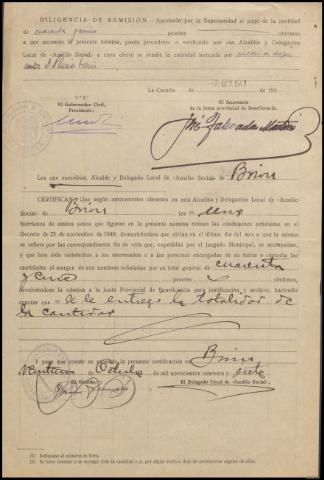 DILIGENCIA DE REMISIÓN.- Aprobado por la Superioridad el pago de la cantidad
de cuarenta pesetas céntimos
a que asciende el presente nómina, puede procederse a verificarlo por esa Alcaldía y Delegación
Local de «Auxilio Social» a cuyo efecto se remite la cantidad indicada por
La Coruña 194
V.º B.º
El Gobernador Civil,
Presidente:
El Secretario
de la Junta provincial de Beneficencia.
Los que suscriben, Alcalde y Delegado Local de «Auxilio Social» de Brión
CERTIFICAN: Que según antecedentes obrantes en esta Alcaldía y Delegación Local de «Auxilio
Social» de Brión los (1) uno
huérfanos de ambos sexos que figuran en la presente nómina reúnen las condiciones señaladas en el
Decreto de 23 de noviembre de 1940, demostrándose que vivían en el último día del mes a que la misma
se refiere por las correspondientes fés de vida que, expedidas por el Juzgado Municipal, se acompañan,
y que han sido satisfechas a los interesados o a las personas encargadas de su tutela o custodia las
cantidades al margen de sus nombres señaladas por un total general cuarenta
pesetas céntimos,
devolviéndose la nómina a la Junta Provincial de Beneficencia para justificación y archivo, haciendo
constar que (2) se le entregó la totalidad de
la cantidad
Y para que conste se expide la presente certificación en Brión
a veintiuno Octubre de mil novecientos cuarenta y siete
El Alcalde,
El Delegado Local de «Auxilio Social»,
(1) Indíquese el número en letra.
(2) Se hará constar si se entregó toda la cantidad o si, por algún motivo, dejó de satisfacerse alguna de ellas.